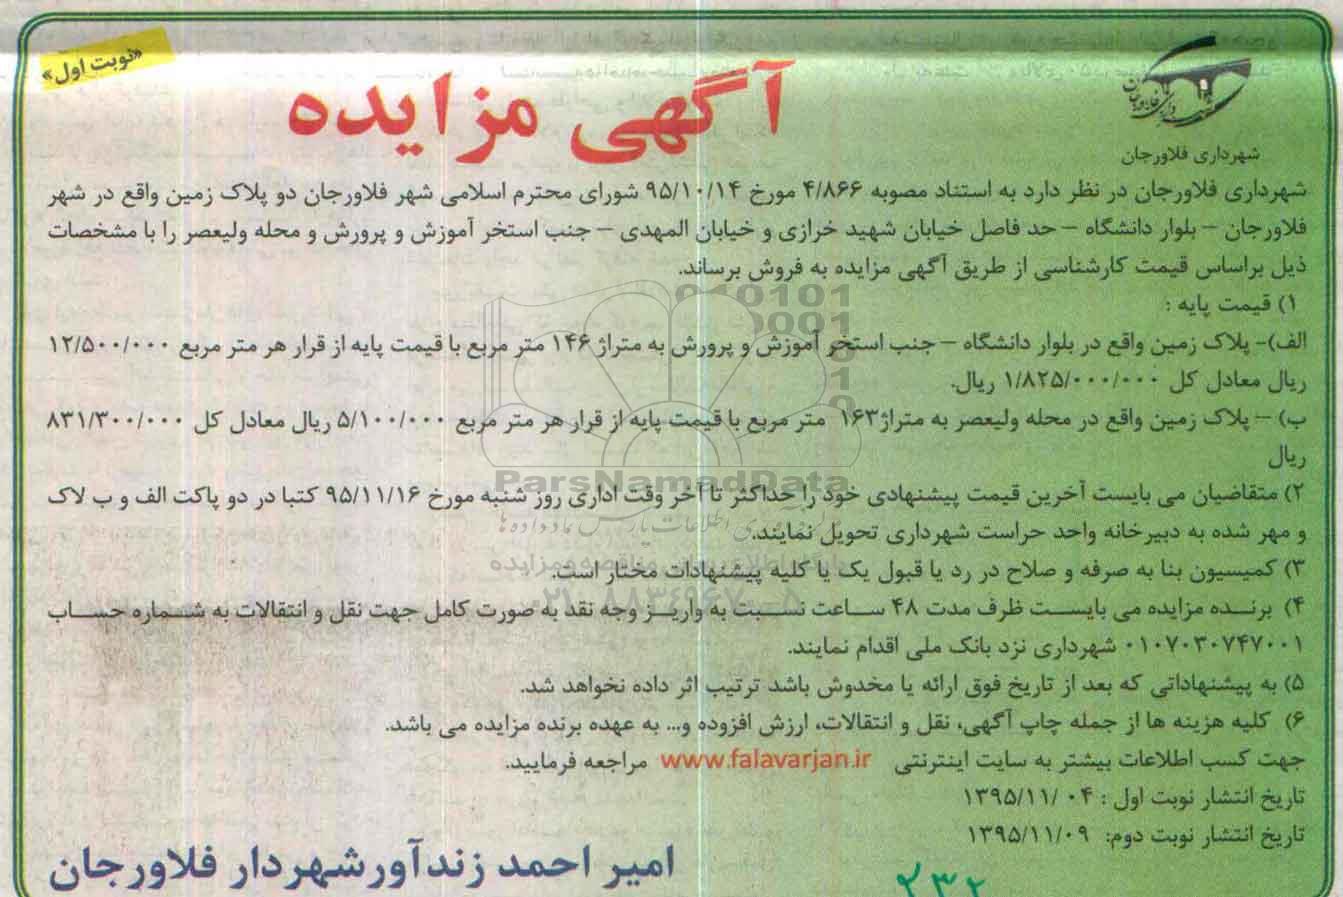 «نوبت اول»
آگهی مزایده
شهرداری فلاورجان
شهرداری فلاورجان در نظر دارد به استناد مصوبه ۴/۸۶۶ مورخ ۹۵/۱۰/۱۴ شورای محترم اسلامی شهر فلاورجان دو پلاک زمین واقع در شهر
فلاورجان – بلوار دانشگاه – حد فاصل خیابان شهید خرازی و خیابان المهدی – جنب استخر آموزش و پرورش و محله ولیعصر را با مشخصات
ذیل براساس قیمت کارشناسی از طریق آگهی مزایده به فروش برساند.
۱) قیمت پایه :
الف)- پلاک زمین واقع در بلوار دانشگاه – جنب استخر آموزش و پرورش به متراژ ۱۴۶ متر مربع با قیمت پایه از قرار هر متر مربع ۱۲/۵۰۰/۰۰۰
ریال معادل کل ۱/۸۲۵/۰۰۰/۰۰۰ ریال.
ب) – پلاک زمین واقع در محله ولیعصر به متراژ۱۶۳ متر مربع با قیمت پایه از قرار هر متر مربع ۵/۱۰۰/۰۰۰ ریال معادل کل ۸۳۱/۳۰۰/۰۰۰
ریال
۲) متقاضیان می بایست آخرین قیمت پیشنهادی خود را حداکثر تا آخر وقت اداری روز شنبه مورخ ۹۵/۱۱/۱۶ کتبا در دو پاکت الف و ب لاک
و مهر شده به دبیرخانه واحد حراست شهرداری تحویل نمایند.
۳) کمیسیون بنا به صرفه و صلاح در رد یا قبول یک یا کلیه پیشنهادات مختار است.
۴) برنده مزایده می بایست ظرف مدت ۴۸ ساعت نسبت به واریز وجه نقد به صورت کامل جهت نقل و انتقالات به شماره حساب
۰۱۰۷۰۳۰۷۴۷۰۰۱ شهرداری نزد بانک ملی اقدام نمایند.
۵) به پیشنهاداتی که بعد از تاریخ فوق ارائه یا مخدوش باشد ترتیب اثر داده نخواهد شد.
۶) کلیه هزینه ها از جمله چاپ آگهی، نقل و انتقالات، ارزش افزوده و... به عهده برنده مزایده می باشد.
جهت کسب اطلاعات بیشتر به سایت اینترنتی www.falavarjan.ir مراجعه فرمایید.
تاریخ انتشار نوبت اول : ۰۴ /۱۳۹۵/۱۱
تاریخ انتشار نوبت دوم: ۱۳۹۵/۱۱/۰۹
امیر احمد زندآورشهردار فلاورجان
۲۳۲
ParsNamadData